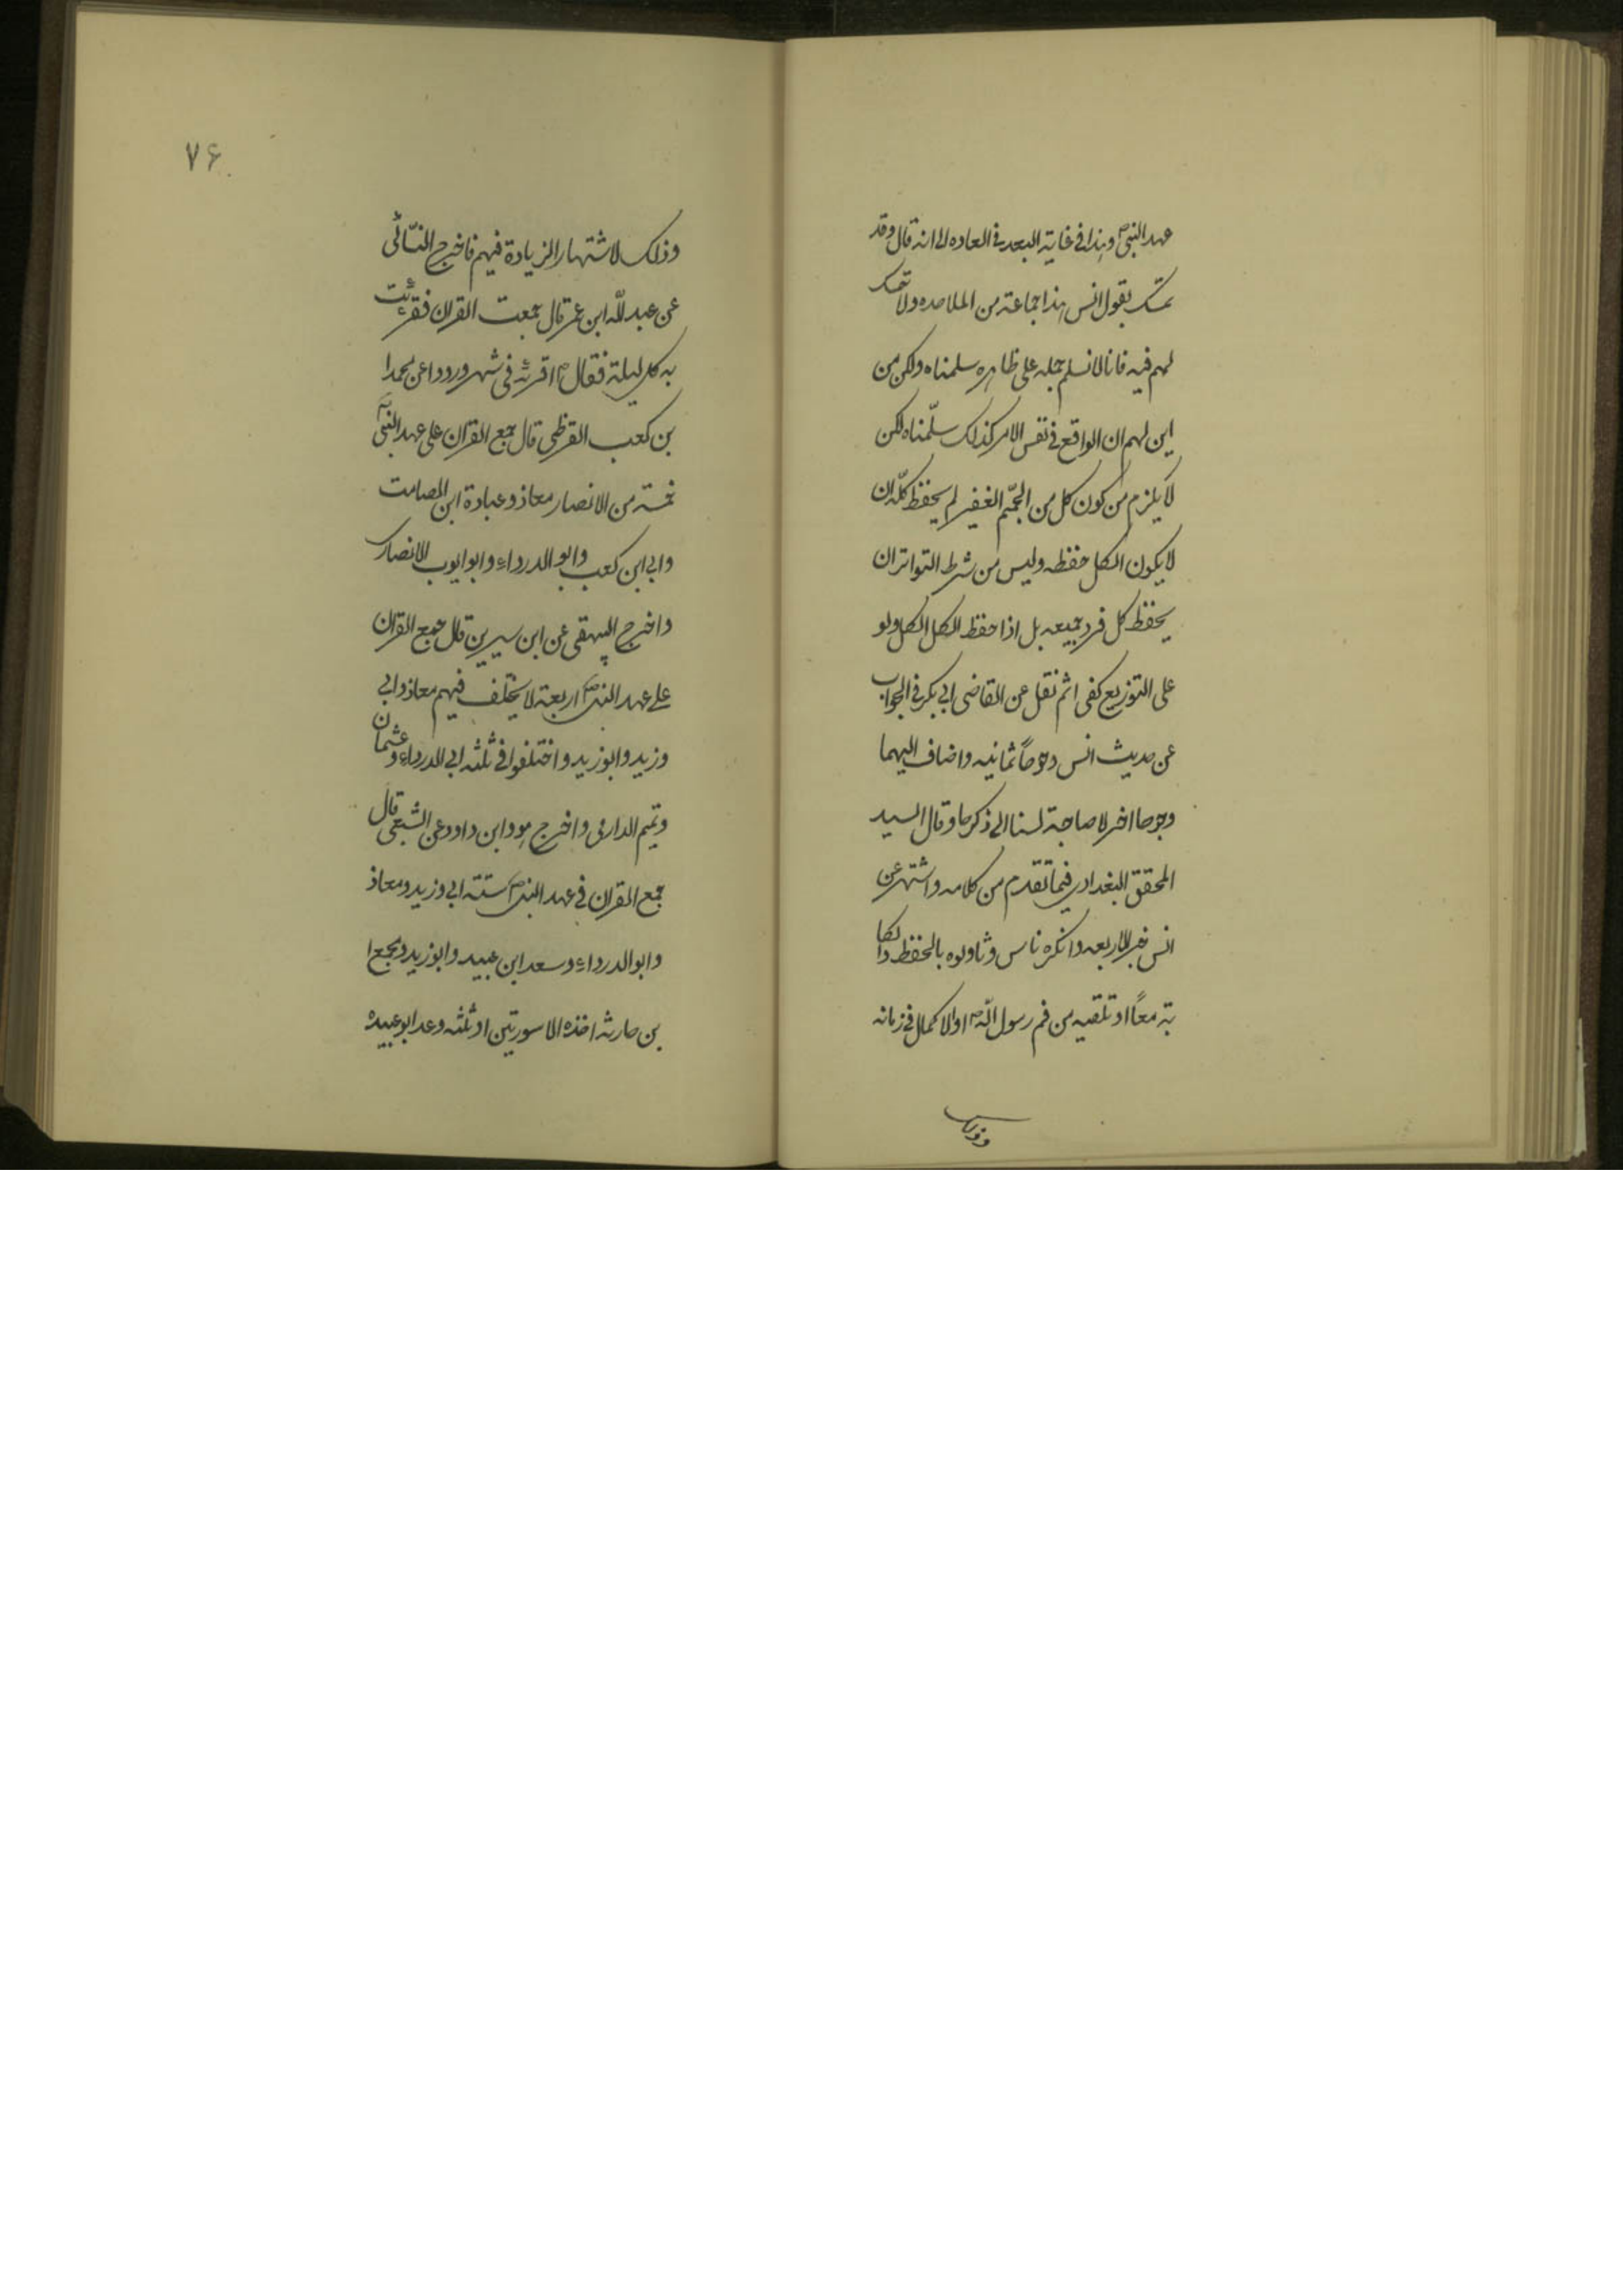 عهد النبی ص وهذا فی غایة البعد فی العاده الی انه قال وقد
تمسک بقول انس هذا جماعة من الملاحده ولا تمسک
لهم فیه فانا لا نسلم حمله علی ظاهره سلمناه ولکن من
این لهم ان الواقع فی نفس الامر کذلک سلّمناه لکن
لا یلزم من کون کل من الجمّ الغفیر لم یحفظ کلّه ان
لا یکون الکل حفظه ولیس من شرط التواتر ان
یحفظ کل فرد جمیعه بل اذا حفظ الکل الکل ولو
علی التوزیع کفی اثم نقل عن القاضی ابی بکر فی الجواب
عن حدیث انس وجوهاً ثمانیه واضاف الیهما
وجوها اخر لا حاجة لسنا الی ذکرها وقال السید
المحقق البغدادی فیما تقدم من کلامه واشتهر عن
انس نفر الاربعه وانکره ناس وتاولوه بالحفظ والکتا
بة معاً او تلقیه من فم رسول اللّه ص او الاکمال فی زمانه
وذلک
وذلک لاشتهار الزیادة فیهم فاخرج النسّائی
عن عبد اللّه ابن عمر قال جمعت القران فقرئت
به کل لیلة فقال ص اقرئه فی شهر وردوا عن محمدا
بن کعب القرظی قال جمع القران علی عهد النبی ص
خمسة من الانصار معاذ وعبادة ابن الصامت
وابی ابن کعب وابو الدرداء وابو ایوب الانصاری
واخرج البیهقی عن ابن سیرین قال جمع القران
علی عهد النبی ص اربعة لا یختلف فیهم معاذ وابی
وزید وابوزید واختلفوا فی ثلثه ابی الدرداء وعثمان
وتمیم الداری واخرج هو وابن داود عن الشعبی قال
جمع القران فی عهد النبی ص ستة ابی وزید ومعاذ
وابو الدرداء وسعد ابن عبید وابوزید ومجمع ا
بن حارثه اخذه الا سورتین او ثلثه وعد ابو عبیده
۷۶